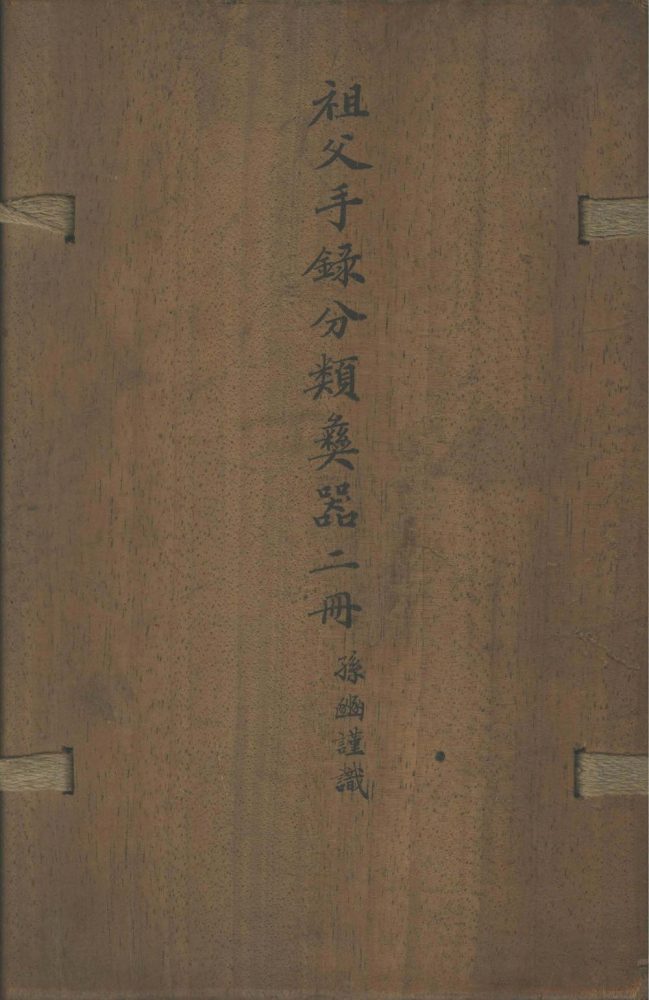 祖父手録分類彝器二冊
孫謹識